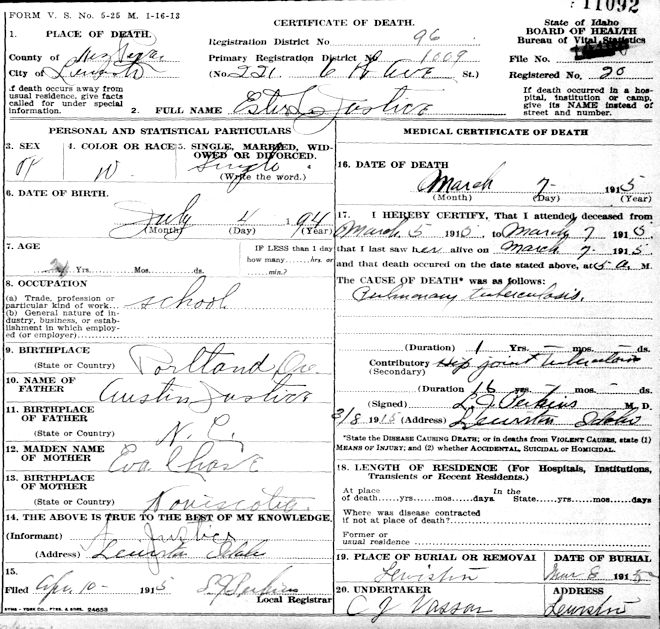 11092
FORM V. S. No. 5-25 M. 1-16-13
CERTIFICATE OF DEATH.
State of Idaho
BOARD OF HEALTH
Bureau of Vital Statistics
1. PLACE OF DEATH.
County of Nez Perce
City of Lewiston
Registration District No. 96
Primary Registration District No. 1009
(No. 221 6th Ave St.)
File No.
Registered No. 20
If death occurs away from usual residence, give facts called for under special information.
2. FULL NAME Justice
If death occurred in a hospital, institution or camp, give its NAME instead of street and number.
PERSONAL AND STATISTICAL PARTICULARS
3. SEX
4. COLOR OR RACE W.
5. SINGLE, MARRIED, WIDOWED OR DIVORCED.
Single
(Write the word.)
6. DATE OF BIRTH.
July 4 1 94
(Month) (Day) (Year)
7. AGE
Yrs. Mos. ds.
IF LESS than 1 day how many hrs. or min.?
8. OCCUPATION
(a) Trade, profession or particular kind of work
(b) General nature of industry, business, or establishment in which employed (or employer)
School
9. BIRTHPLACE
(State or Country) Portland, Ore
10. NAME OF FATHER Austin Justice
11. BIRTHPLACE OF FATHER
(State or Country) N. C.
12. MAIDEN NAME OF MOTHER Eva Chase
13. BIRTHPLACE OF MOTHER
(State or Country) Noviscotia
14. THE ABOVE IS TRUE TO THE BEST OF MY KNOWLEDGE.
(Informant) A Justice
(Address) Lewiston Idaho
15.
Filed Apr 10 - 1915 Perkins
Local Registrar
SYMS - YORK CO., PTRS. & BNRS. 24653
MEDICAL CERTIFICATE OF DEATH
16. DATE OF DEATH
March 7- 1915
(Month) (Day) (Year)
17. I HEREBY CERTIFY, That I attended deceased from
March 5 1915 to March 7 1915
that I last saw her alive on March 7- 1915
and that death occured on the date stated above, at 5 a. M.
The CAUSE OF DEATH* was as follows:
Pulmonary tuberculosis.
(Duration) 1 Yrs. - mos. - ds.
Contributory Hip joint tuberculosis
(Secondary)
(Duration) 16 yrs. mos. - ds.
(Signed) L. J. Perkins M. D.
3/8 1915 (Address) Lewiston Idaho
*State the DISEASE CAUSING DEATH; or in deaths from VIOLENT CAUSES, state (1) MEANS OF INJURY; and (2) whether ACCIDENTAL, SUICIDAL OR HOMICIDAL.
18. LENGTH OF RESIDENCE (For Hospitals, Institutions, Transients or Recent Residents.)
At place of death yrs. mos. days In the State yrs. mos. days
Where was disease contracted if not at place of death?
Former or usual residence
19. PLACE OF BURIAL OR REMOVAL
Lewiston
DATE OF BURIAL
Mar 8 1915
20. UNDERTAKER
C J Vassar
ADDRESS
Lewiston